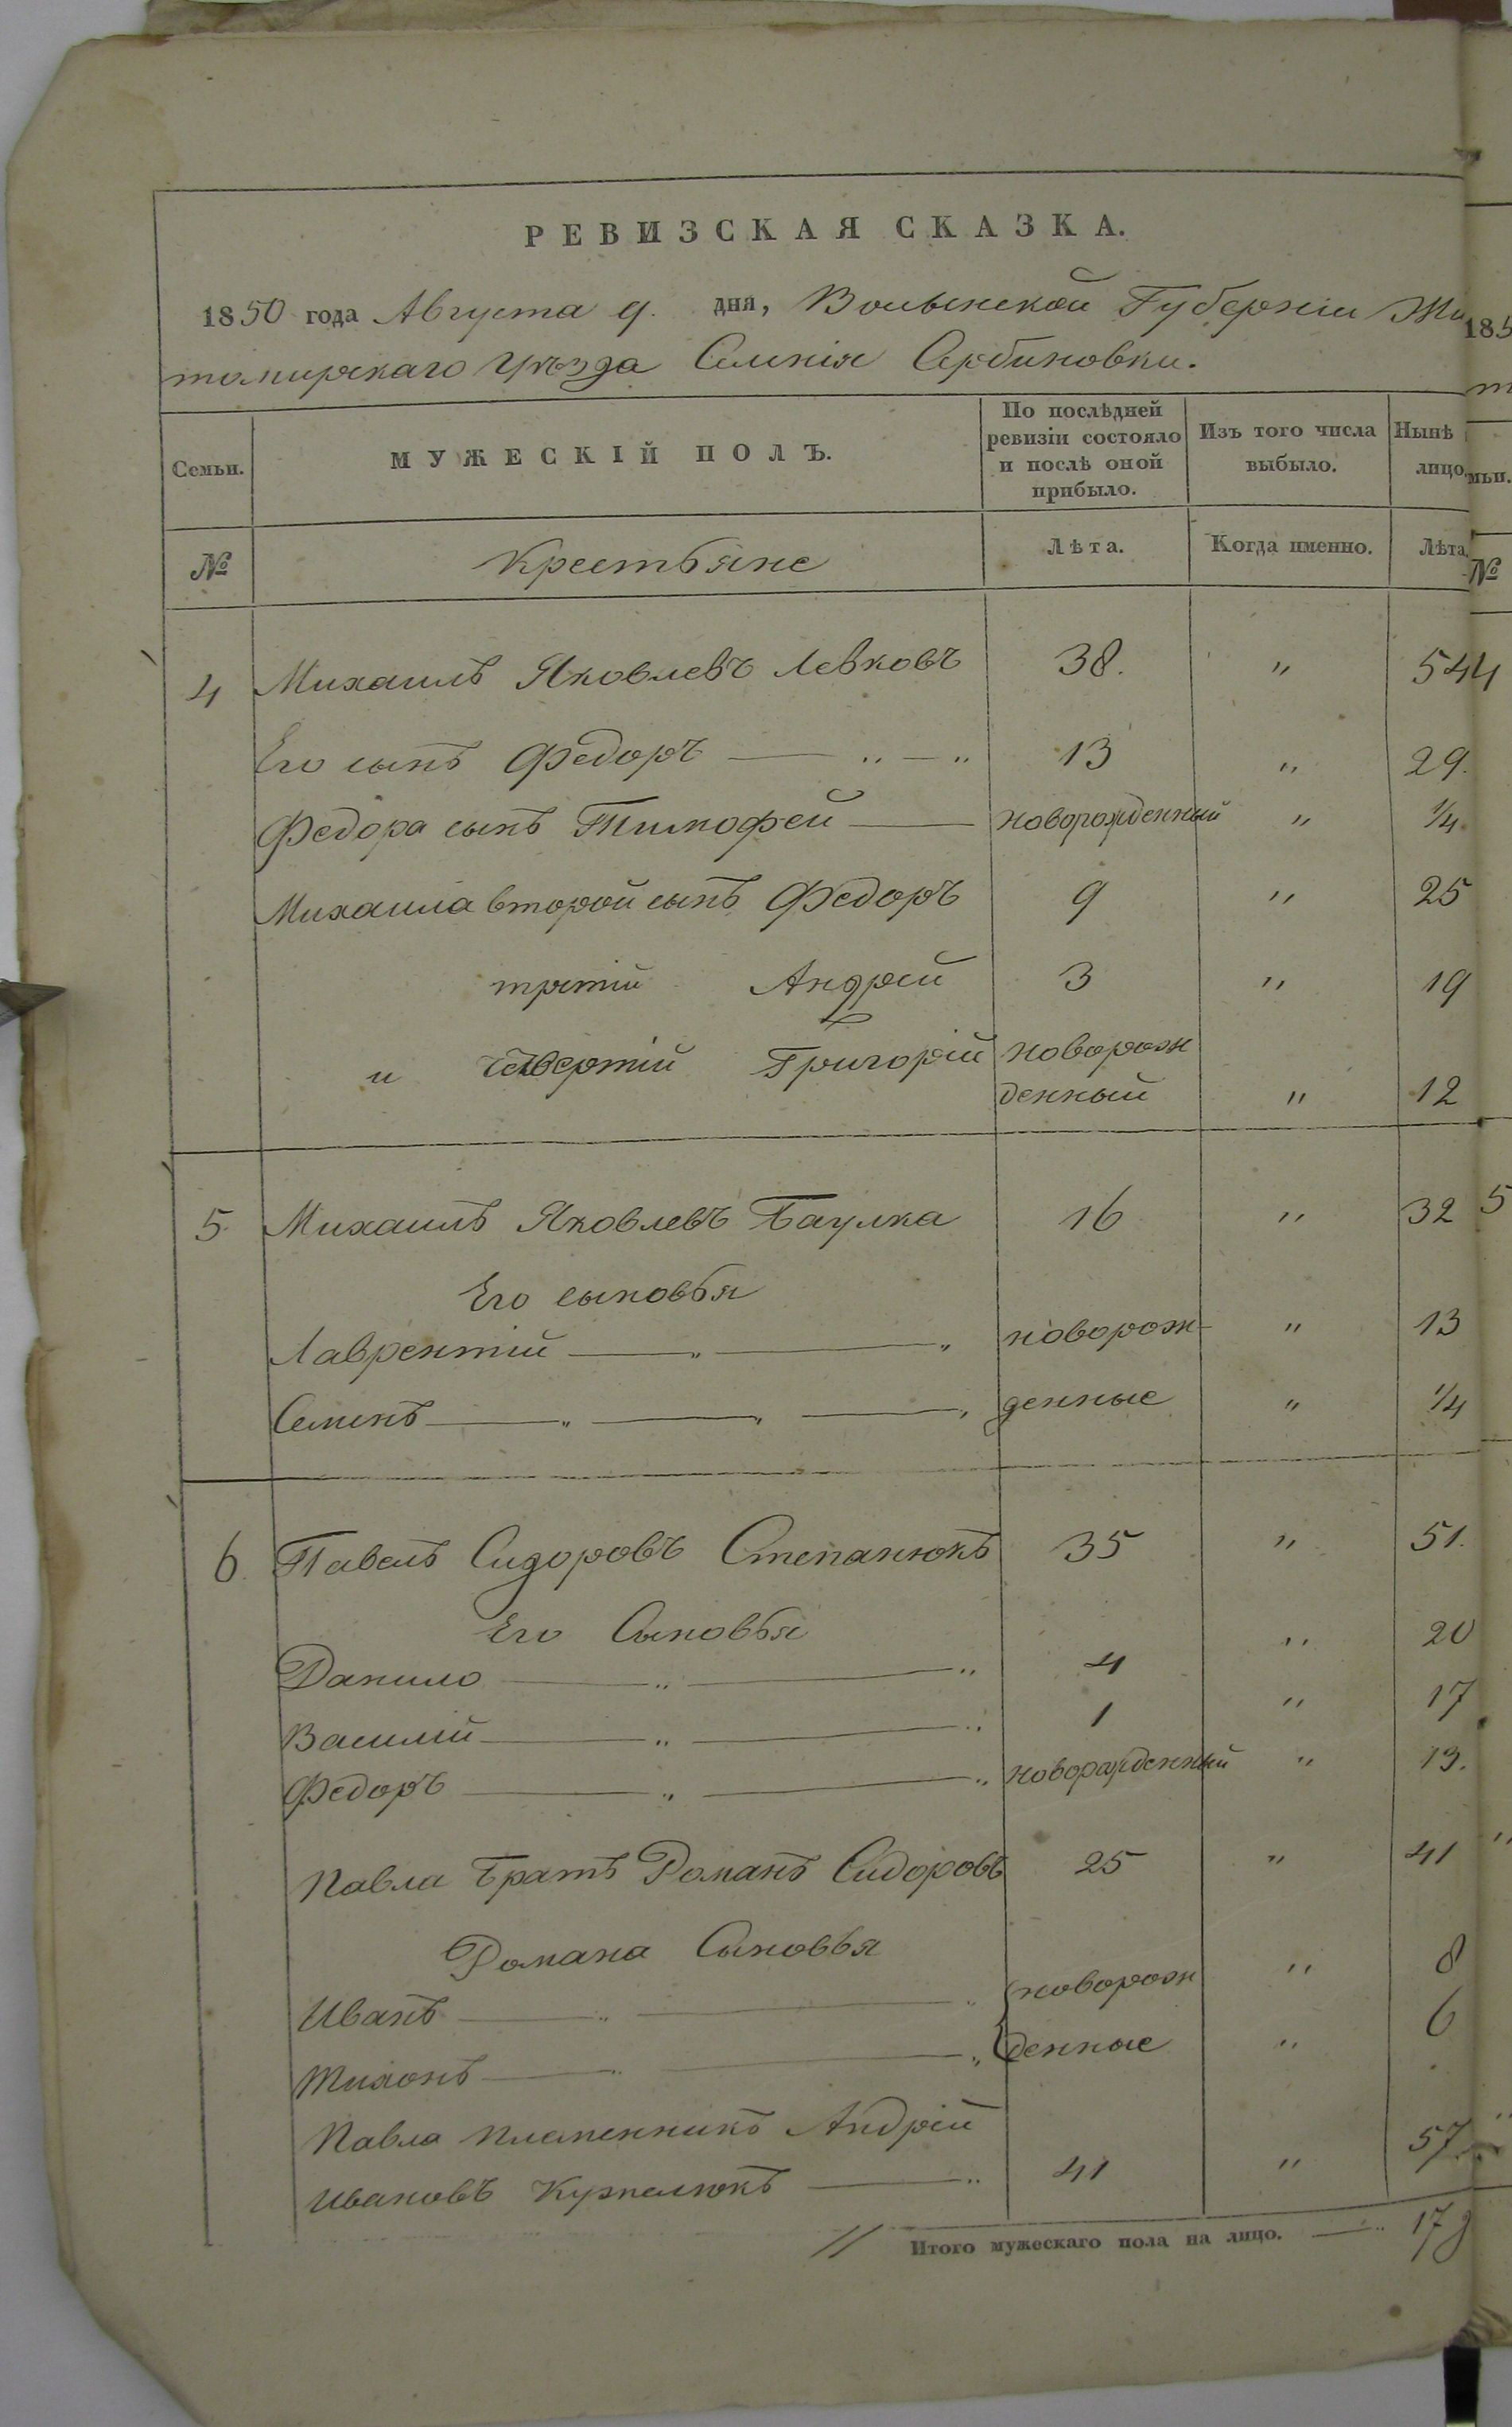 РЕВИЗСКАЯ СКАЗКА.
1850 года Августа 9. дня, Волынской Губерніи Жи
томирскаго Уѣзда Селенія Сербиновки.
Семьи. МУЖЕСКІЙ ПОЛЪ. По послѣдней ревизіи состояло и послѣ оной прибыло. Изъ того числа выбыло. Нынѣ лицо
№ Крестьяне Лѣта. Когда именно. Лѣта.
4 Михаилъ Яковлевъ Левковъ 38. " 54
Его сынъ Федоръ — " — " 13 " 29.
Федора сынъ Тимофей — новорожденный " 1/4
Михаила второй сынъ Федоръ 9 " 25
третій Андрей 3 " 19
и четвертій Григорій новорож
денный " 12
5 Михаилъ Яковлевъ Баулка 16 " 32
Его сыновья
Лаврентій — " — " новорож- " 13
Семенъ — " — " — " денные " 1/4
6. Павелъ Сидоровъ Степанюкъ 35 " 51.
Его Сыновья
Данило — " — " 4 " 20
Василій — " — " 1 " 17
Федоръ — " — " новорожденный " 13.
Павла Братъ Романъ Сидоровъ 25 " 41
Романа Сыновья
Иванъ — " — " новорож " 8
Тихонъ — " — " денные " 6
Павла племенникъ Андрей
Ивановъ 41 " 57.
// Итого мужескаго пола на лицо. — " 17
185
мьи.
№
4
5